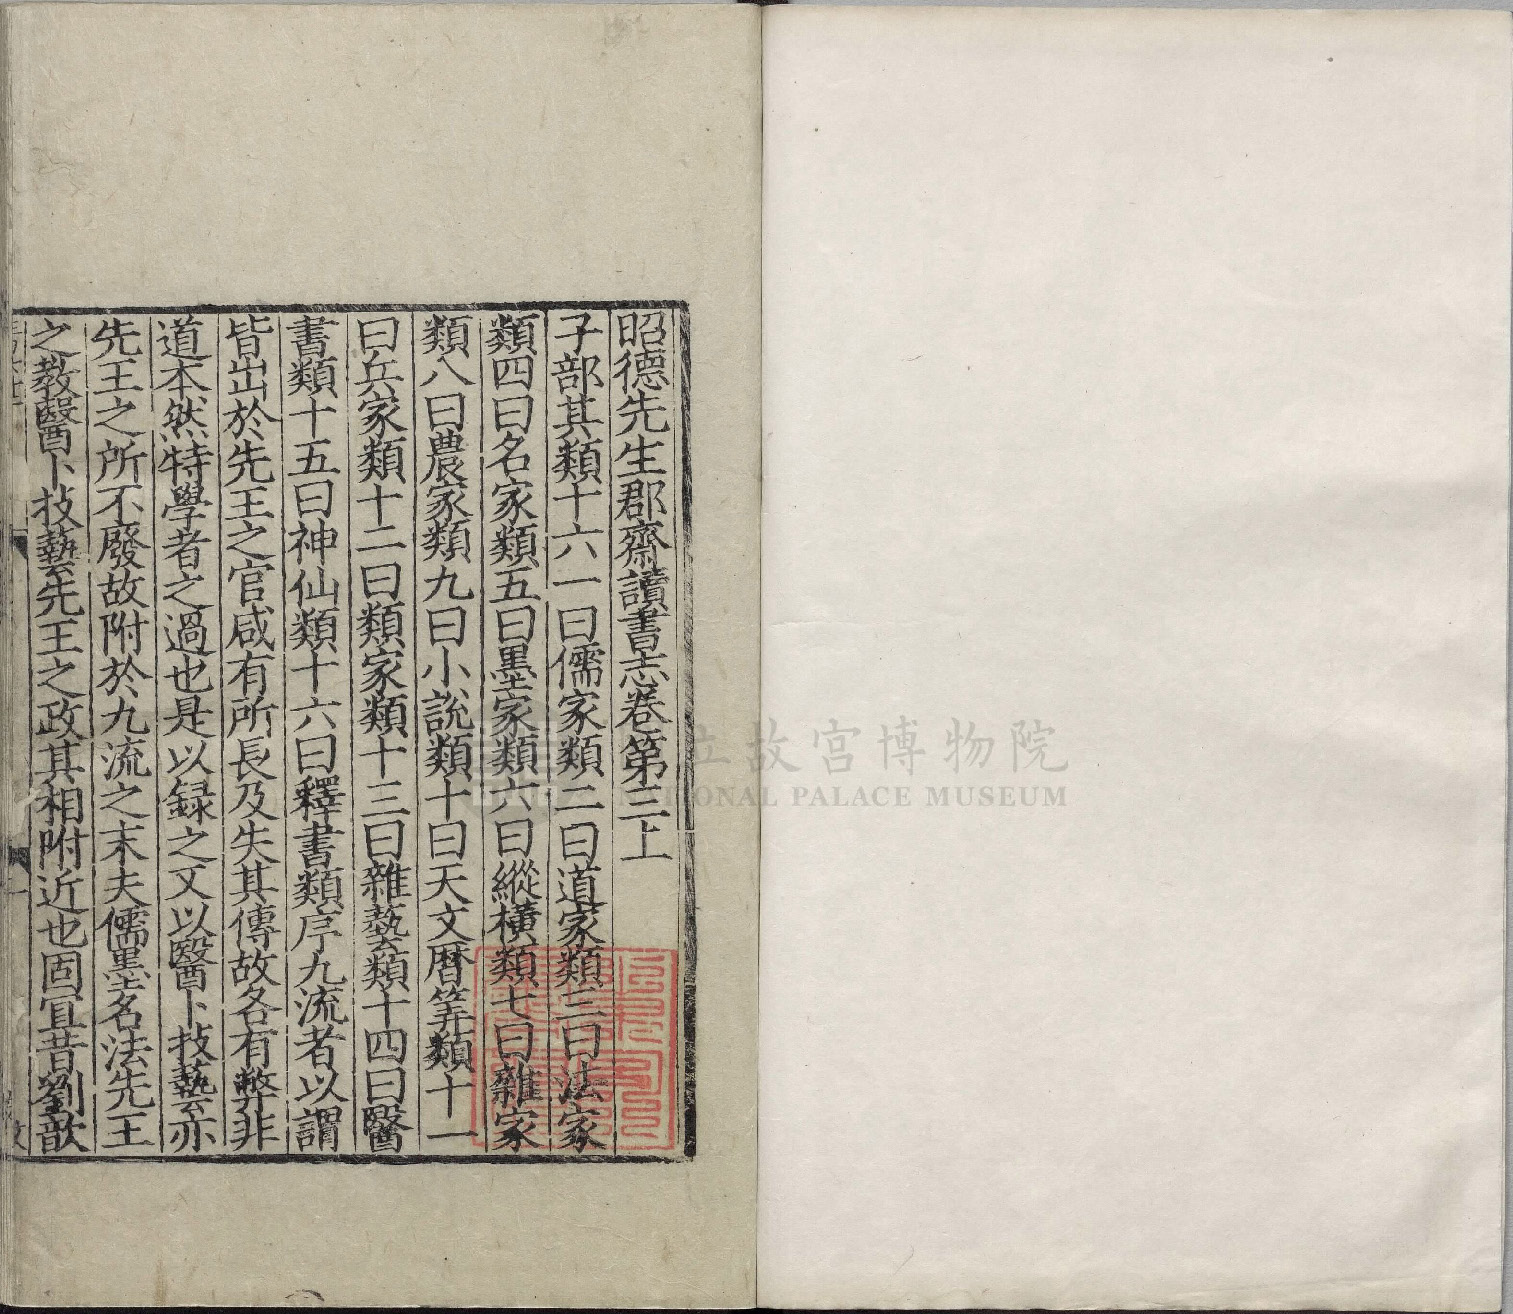 昭德先生郡齋讀書志卷第三上
子部其類十六一曰儒家類二曰道家類三曰法家
類四曰名家類五曰墨家類六曰縱橫類七曰雜家
類八曰農家類九曰小說類十曰天文曆筭類十一
曰兵家類十二曰類家類十三曰雜藝類十四曰醫
書類十五曰神仙類十六曰釋書類序九流者以謂
皆出於先王之官咸有所長及失其傳故各有弊非
道本然特學者之過也是以録之又以醫卜技藝亦
先王之所不廢故附於九流之末夫儒墨名法先王
之教醫卜技藝先王之政其相附近也固宜昔劉歆
立故宮博物院
NATIONAL PALACE MUSEUM